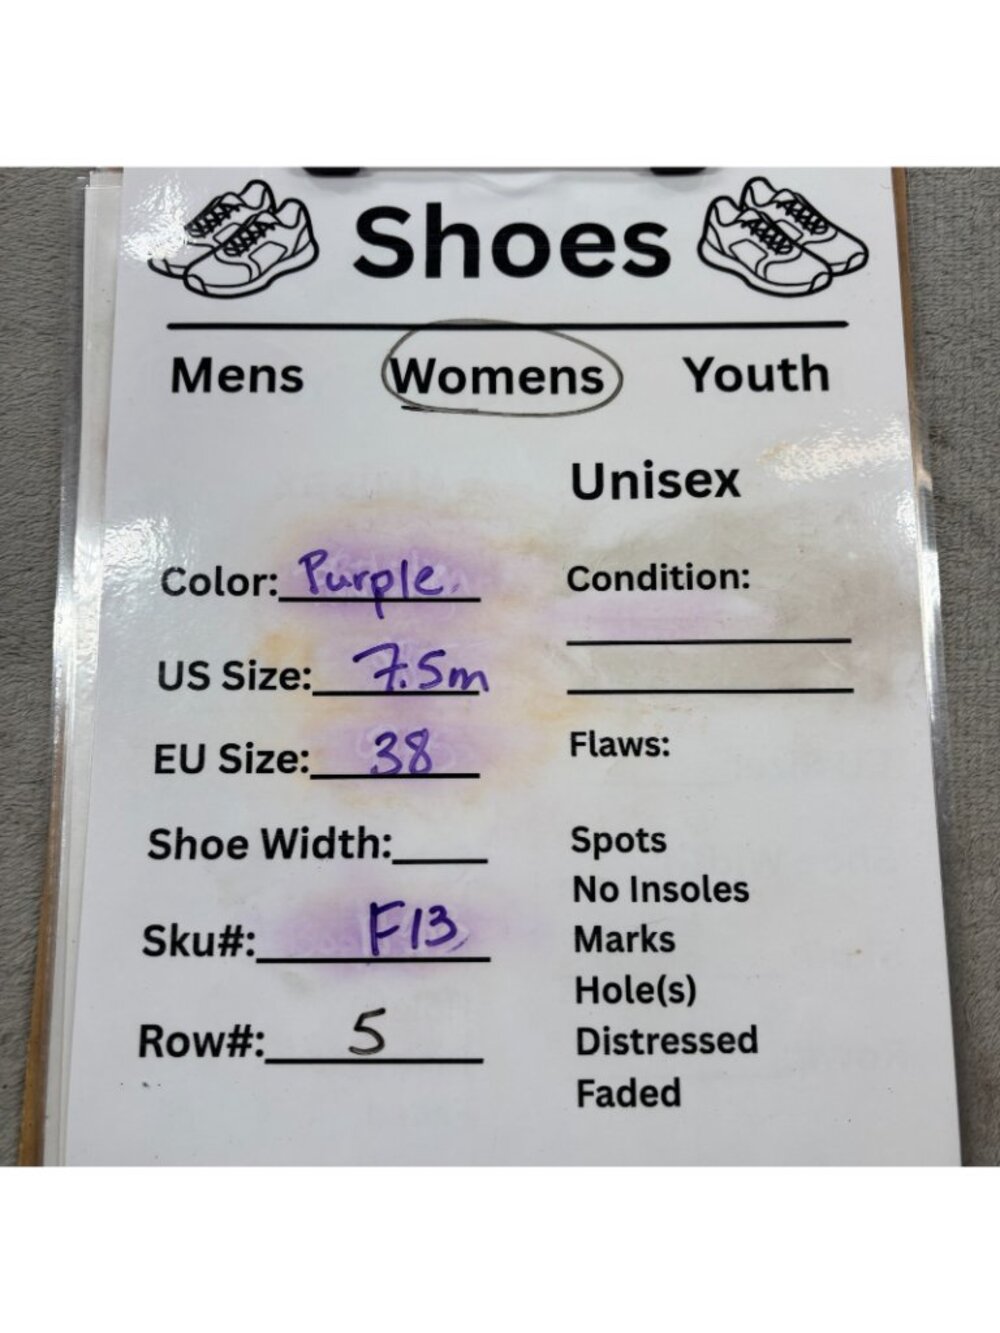 Shoes
Mens Womens Youth
Unisex
Color: Purple
US Size: 7.5m
EU Size: 38
Shoe Width:
Sku#: F13
Row#: 5
Condition:
Flaws:
Spots
No Insoles
Marks
Hole(s)
Distressed
Faded